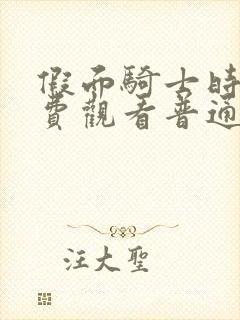 假面騎士時
費觀看普通
汪大聖